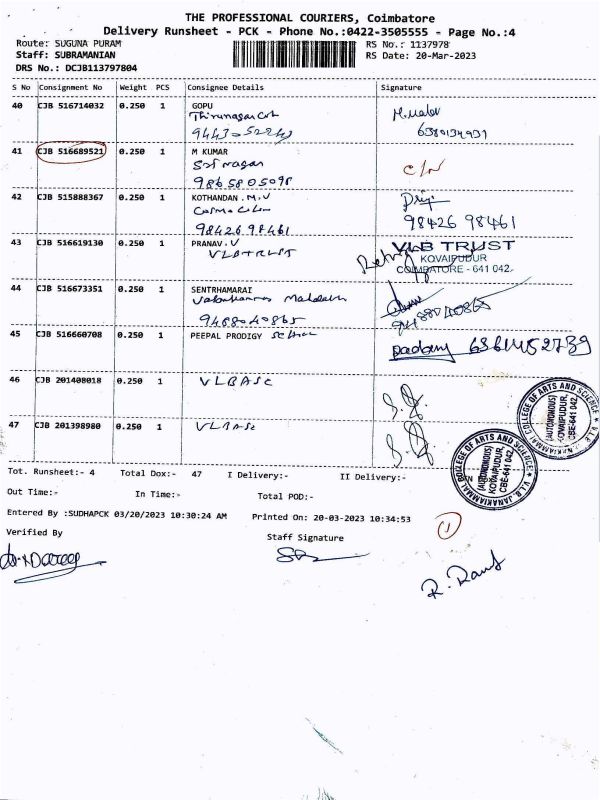 THE PROFESSIONAL COURIERS, Coimbatore
Delivery Runsheet - PCK - Phone No.:0422-3505555 - Page No.:4
Route: SUGUNA PURAM RS No.: 1137978
Staff: SUBRAMANIAN RS Date: 20-Mar-2023
DRS No.: DCJB113797804
S No Consignment No Weight PCS Consignee Details Signature
40 CJB 516714032 0.250 1 GOPU
41 CJB 516689521 0.250 1 M KUMAR
Sri nagar
9865805098
42 CJB 515888367 0.250 1 KOTHANDAN.M.V
98426 98461 98426 98461
43 CJB 516619130 0.250 1 PRANAV.V VLB TRUST
VLB TRUST KOVAIPUDUR
COIMBATORE - 641 042.
44 CJB 516673351 0.250 1 SENTRHAMARAI
9488040865
45 CJB 516660708 0.250 1 PEEPAL PRODIGY School
46 CJB 201408018 0.250 1 VLBASC
47 CJB 201398980 0.250 1 VLBASC
V.L.B. JANAKIAMMAL COLLEGE OF ARTS AND SCIENCE
(AUTONOMOUS)
KOVAIPUDUR,
CBE-641 042.
V.L.B. JANAKIAMMAL COLLEGE OF ARTS AND SCIENCE
(AUTONOMOUS)
KOVAIPUDUR,
CBE-641 042.
Tot. Runsheet:- 4 Total Dox:- 47 I Delivery:- II Delivery:-
Out Time:- In Time:- Total POD:-
Entered By :SUDHAPCK 03/20/2023 10:30:24 AM Printed On: 20-03-2023 10:34:53
1
Verified By Staff Signature